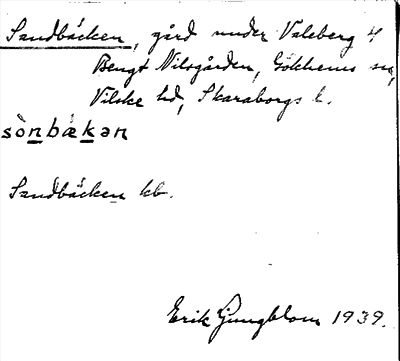 Sandbäcken, gård under Valeberg 4
Bengt Nilsgården, Gökhems sn,
Vilske hd, Skaraborgs l.
sònbǽkən
Sandbäcken kb.
Erik Ljungblom 1939.